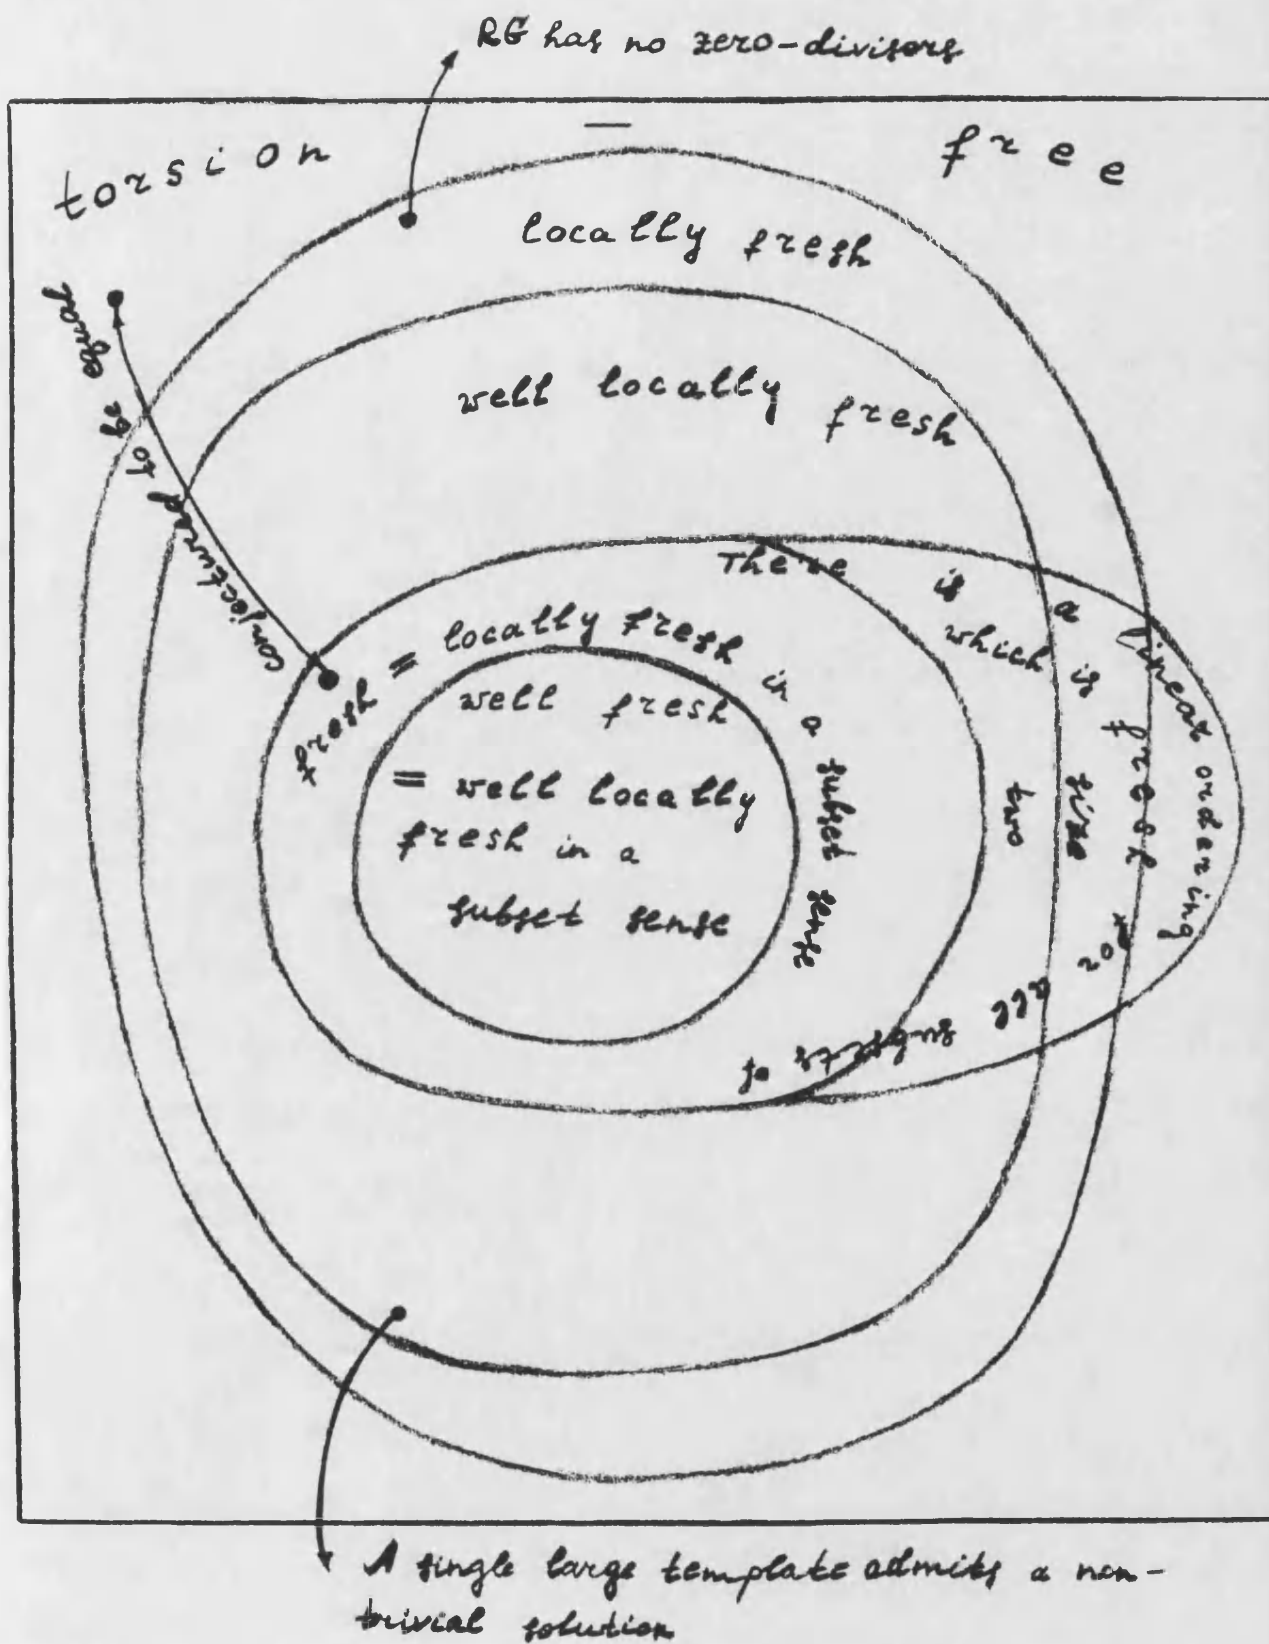 RG has no zero-divisors
torsion — free
locally fresh
well locally fresh
conjectured to be equal
fresh = locally fresh in a subset sense
well fresh
= well locally
fresh in a
subset sense
There is a linear ordering
which is fresh
for all subsets of
size
two
A single large template admits a non-
trivial solution